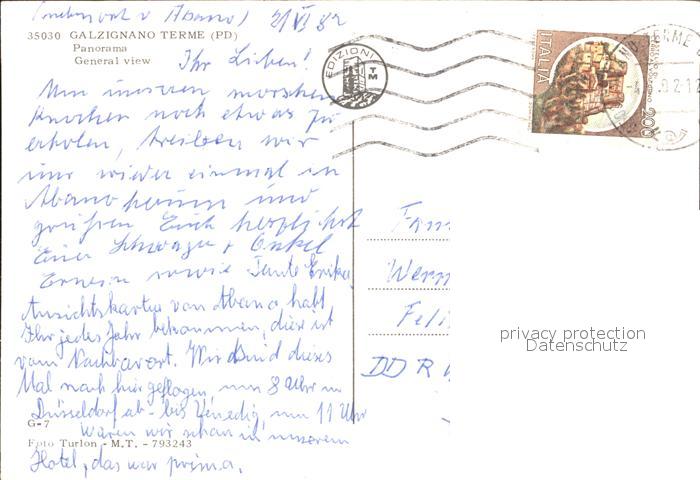 v Abano) 21 VI 82
35030 GALZIGNANO TERME (PD)
Panorama
General view
Ihr Lieben!
EDIZIONI
TM
ITALIA
200
Um unseren morschen
Knochen noch etwas zu
erholen, treiben wir
uns wieder einmal in
Abano herum und
grüßen Euch herzlichst
Euer Schwager + Onkel
sowie Tante Erika
Ansichtskarten von Abano habt
Ihr jedes Jahr bekommen, diese ist
vom Nachbarort. Wir sind dieses
Mal nach hier geflogen, um 8 Uhr in
Düsseldorf ab - bis Venedig, um 11 Uhr
waren wir schon in unserem
Hotel, das war prima.
G-7
Foto Turlon - M.T. - 793243
Fam
Wern
Feli
DDR
privacy protection
Datenschutz